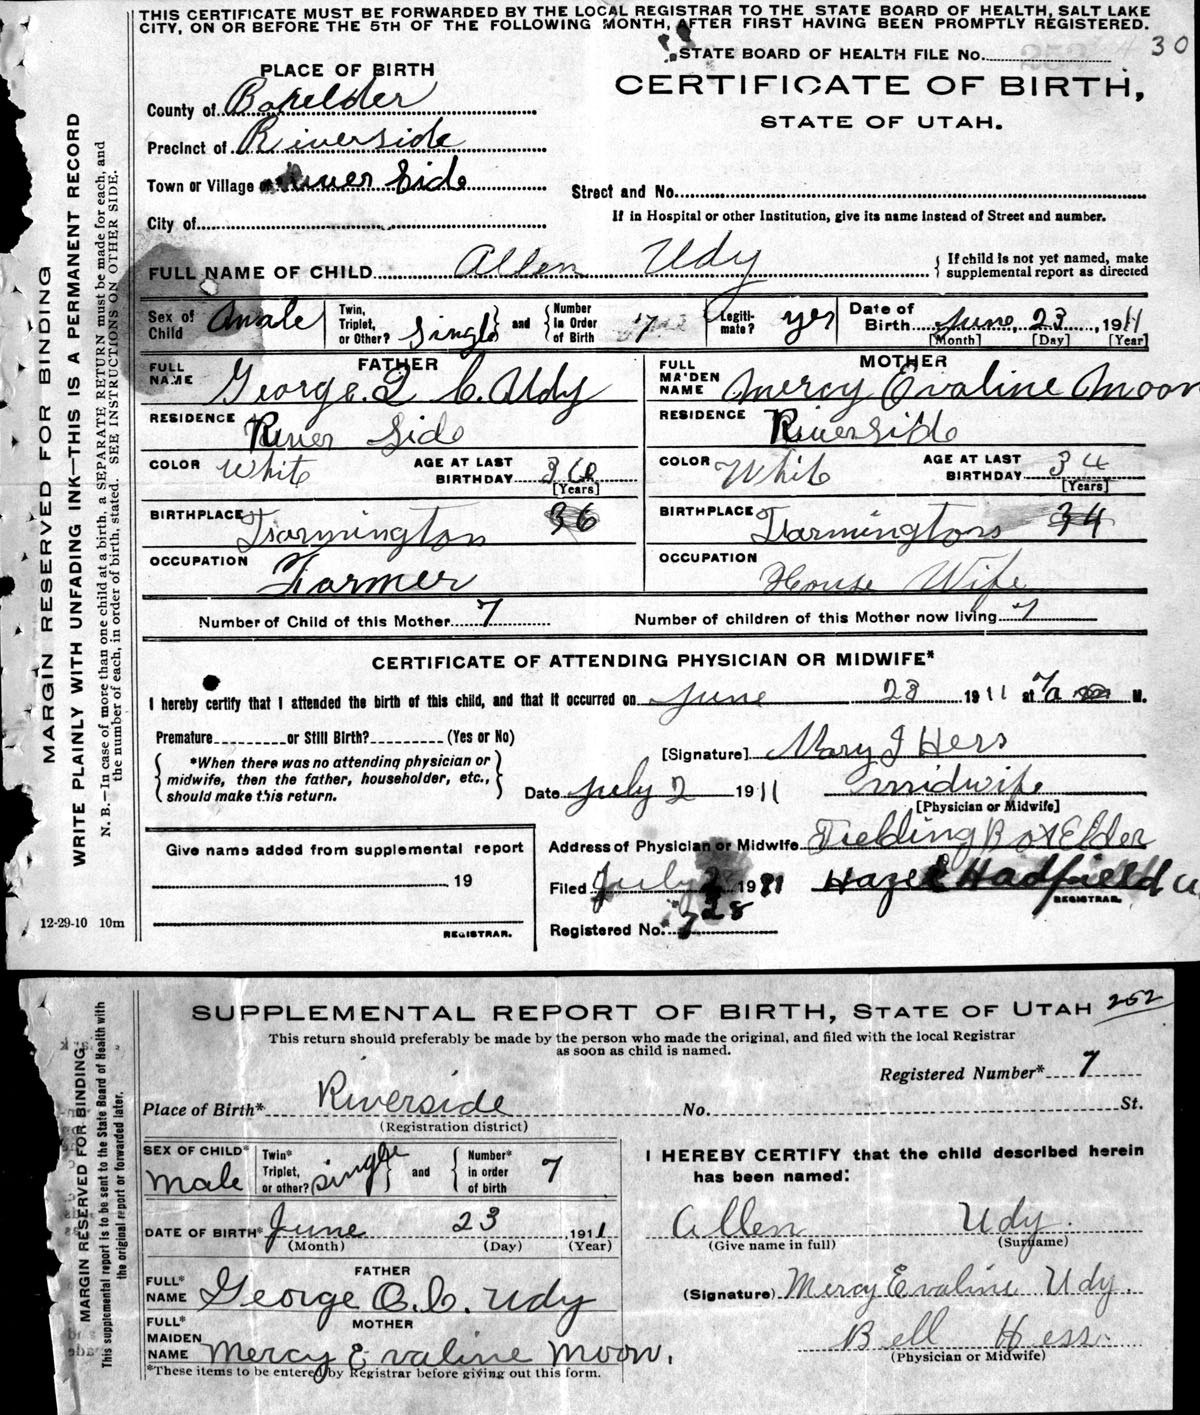 THIS CERTIFICATE MUST BE FORWARDED BY THE LOCAL REGISTRAR TO THE STATE BOARD OF HEALTH, SALT LAKE
CITY, ON OR BEFORE THE 5TH OF THE FOLLOWING MONTH, AFTER FIRST HAVING BEEN PROMPTLY REGISTERED.
STATE BOARD OF HEALTH FILE No. 30
PLACE OF BIRTH
CERTIFICATE OF BIRTH,
STATE OF UTAH.
County of Boxelder
Precinct of Riverside
Town or Village of River Side
Street and No.
City of
If in Hospital or other Institution, give its name instead of Street and number.
FULL NAME OF CHILD Allen Udy
{ If child is not yet named, make
supplemental report as directed
Sex of Child male
Twin, Triplet, or Other? Single and Number in Order of Birth 7
Legiti-mate? yes
Date of Birth June, 23, 1911
[Month] [Day] [Year]
FATHER
FULL NAME George. C. Udy
RESIDENCE River Side
COLOR White AGE AT LAST BIRTHDAY 36
[Years]
BIRTHPLACE Farmington 36
OCCUPATION Farmer
MOTHER
FULL MAIDEN NAME Mercy Evaline Moon
RESIDENCE Riverside
COLOR White AGE AT LAST BIRTHDAY 34
[Years]
BIRTHPLACE Farmington 34
OCCUPATION House Wife
Number of Child of this Mother 7 Number of children of this Mother now living 7
CERTIFICATE OF ATTENDING PHYSICIAN OR MIDWIFE*
I hereby certify that I attended the birth of this child, and that it occurred on June 23 1911 at 7 a M.
Premature or Still Birth? (Yes or No)
*When there was no attending physician or
midwife, then the father, householder, etc.,
should make this return.
[Signature] Mary J Hess
Date July 2 1911 midwife
[Physician or Midwife]
Give name added from supplemental report
19
REGISTRAR.
Address of Physician or Midwife Fielding Box Elder
Filed July 2 1911 Hazel Hadfield
REGISTRAR.
Registered No. 7 28
12-29-10 10m
MARGIN RESERVED FOR BINDING
WRITE PLAINLY WITH UNFADING INK—THIS IS A PERMANENT RECORD
N. B.—In case of more than one child at a birth, a SEPARATE RETURN must be made for each, and
the number of each, in order of birth, stated. SEE INSTRUCTIONS ON OTHER SIDE.
SUPPLEMENTAL REPORT OF BIRTH, STATE OF UTAH 252
This return should preferably be made by the person who made the original, and filed with the local Registrar
as soon as child is named.
Registered Number* 7
Place of Birth* Riverside No. St.
(Registration district)
SEX OF CHILD* male
Twin* Triplet, or other? single and Number* in order of birth 7
DATE OF BIRTH* June 23 1911
(Month) (Day) (Year)
FATHER
FULL* NAME George C. Udy
MOTHER
FULL* MAIDEN NAME Mercy Evaline Moon.
*These items to be entered by Registrar before giving out this form.
I HEREBY CERTIFY that the child described herein
has been named:
Allen Udy.
(Give name in full) (Surname)
(Signature) Mercy Evaline Udy.
Bell Hess.
(Physician or Midwife)
MARGIN RESERVED FOR BINDING.
This supplemental report is to be sent to the State Board of Health with
the original report or forwarded later.